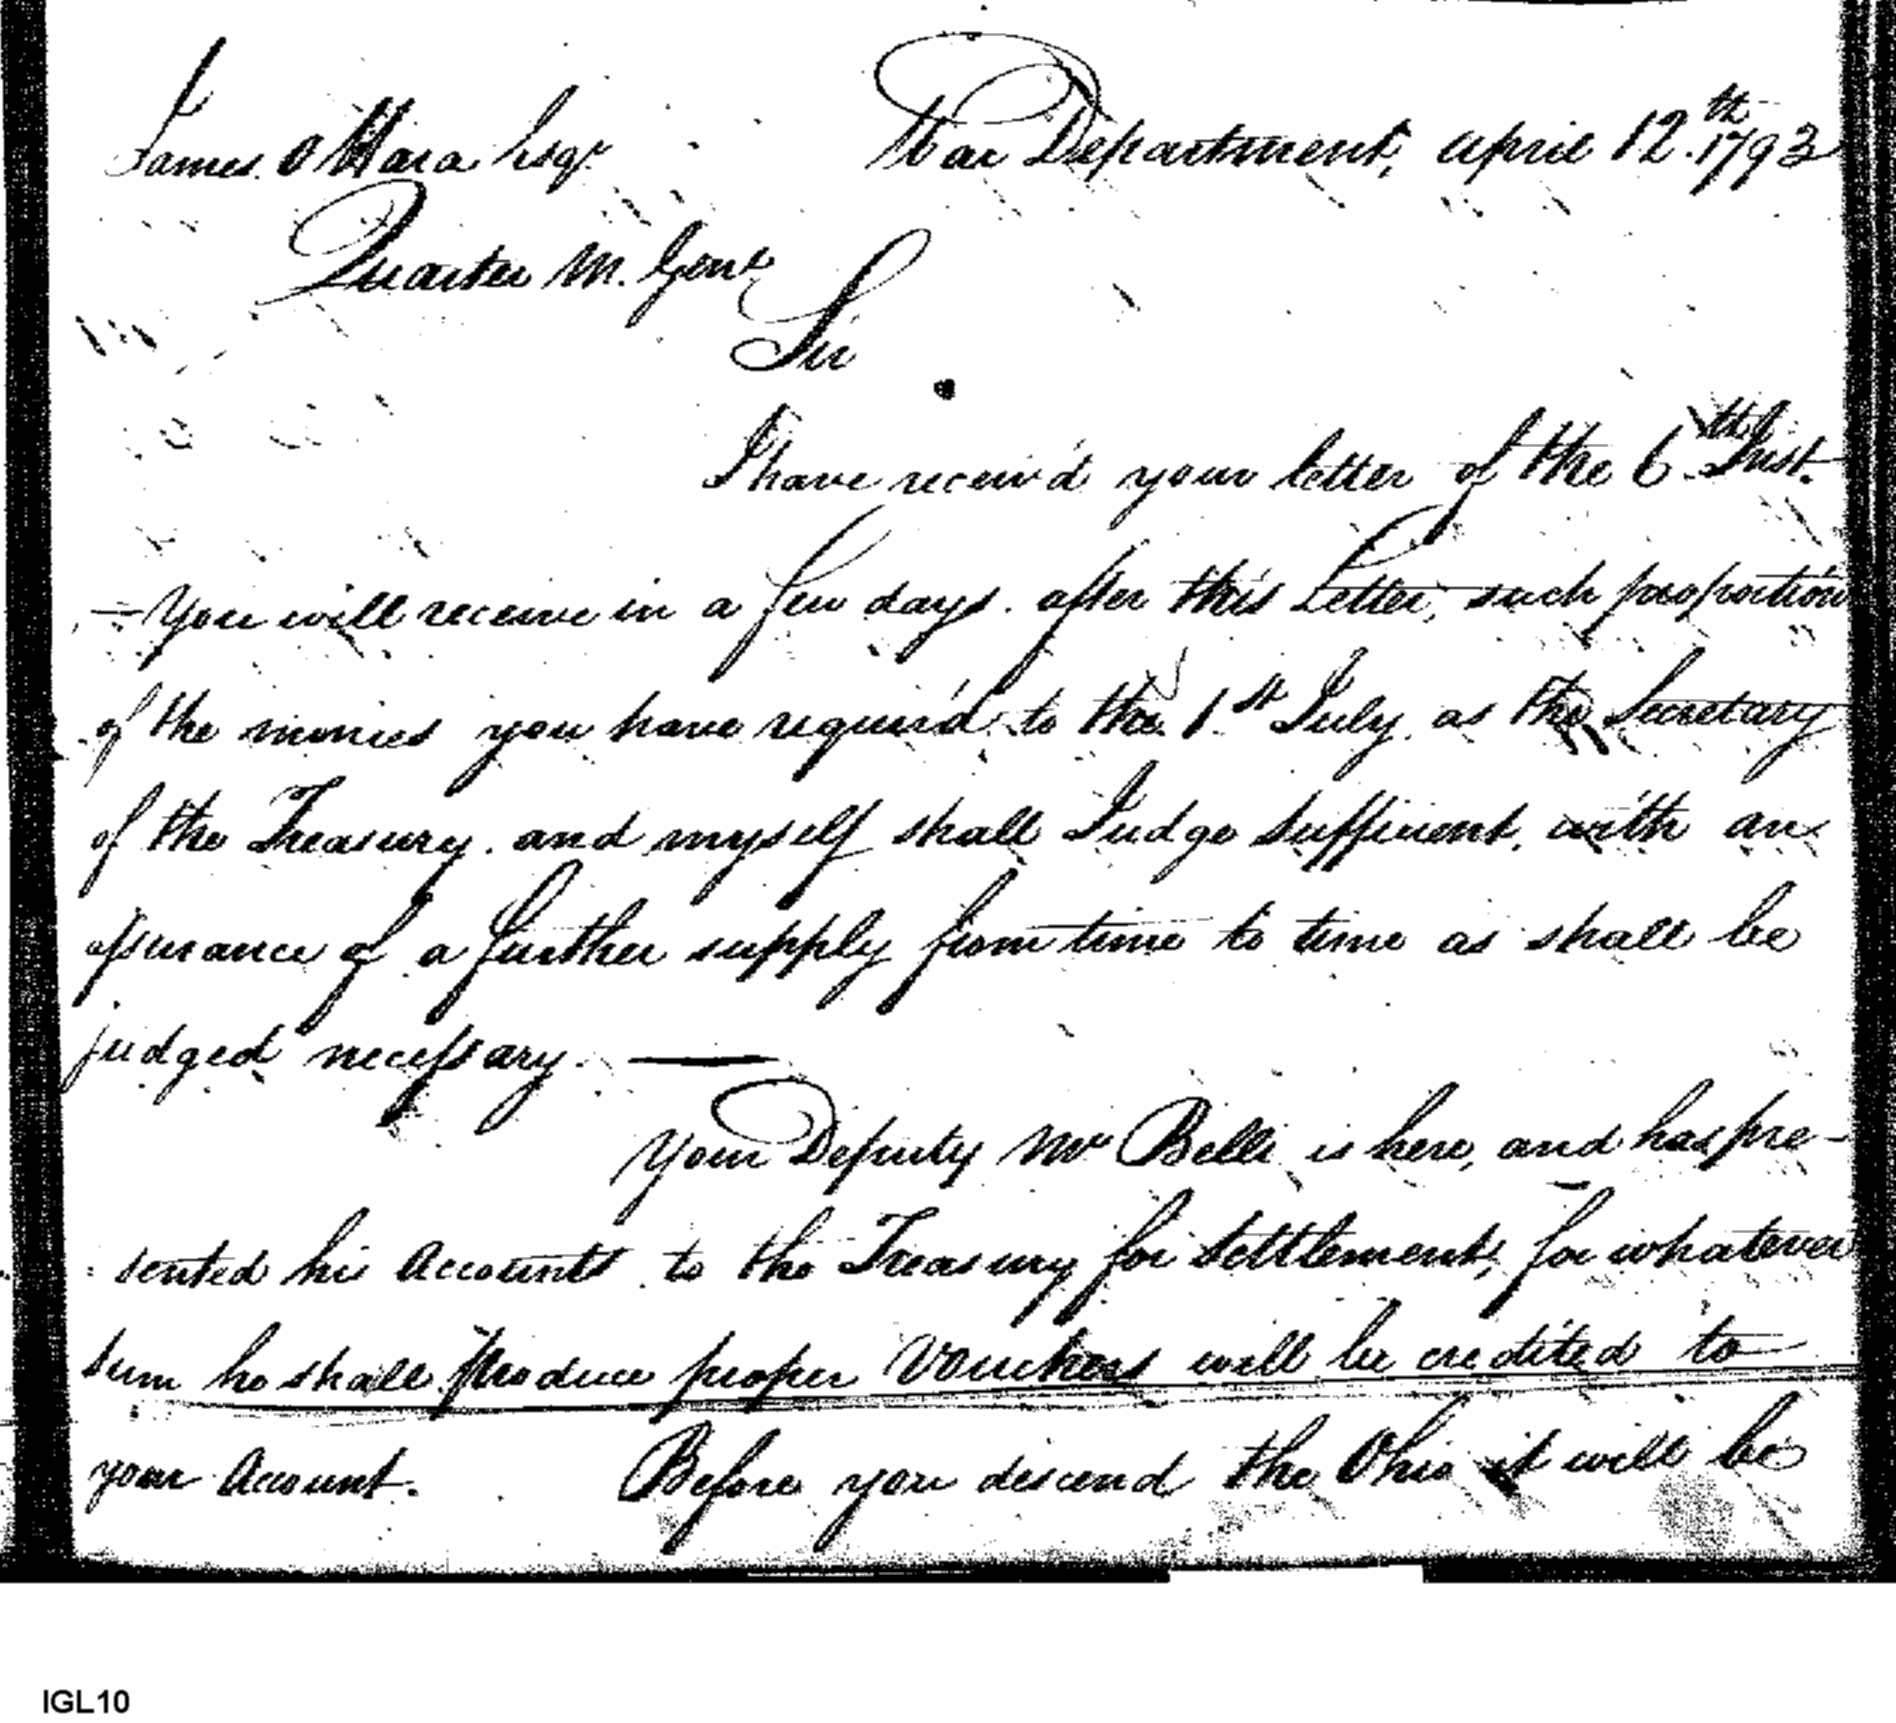 James OHara Esqr War Department, april 12.th 1793
Quarter M. Genl
Sir
I have receiv'd your letter of the 6th Inst.
- You will receive in a few days. after this Letter, such proportion
of the monies you have requir'd to the 1.st July. as the Secretary
of the Treasury. and myself shall Judge Sufficient, with an
assurance of a further supply from time to time as shall be
judged necessary. —
Your Deputy Mr Belli is here, and has pre-
sented his Accounts to the Treasury for Settlement, for whatever
sum he shall produce proper Vouchers will be credited to
your Account. Before you descend the Ohio it will be
IGL10